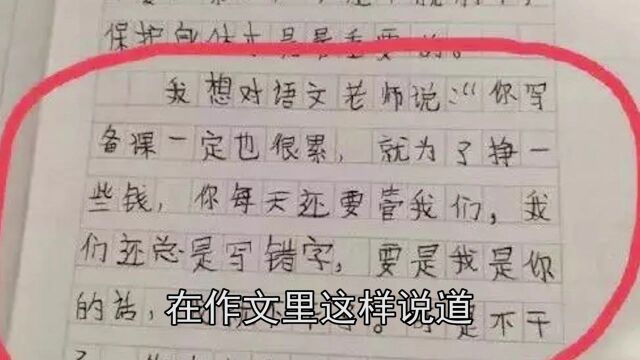 保护自
是最重要的。
我想对语文老师说:“你写
备课一定也很累，就为了挣一
些钱，你每天还要管我们，我
们还总是写错字，要是我是你
的话，
是不干
在作文里这样说道